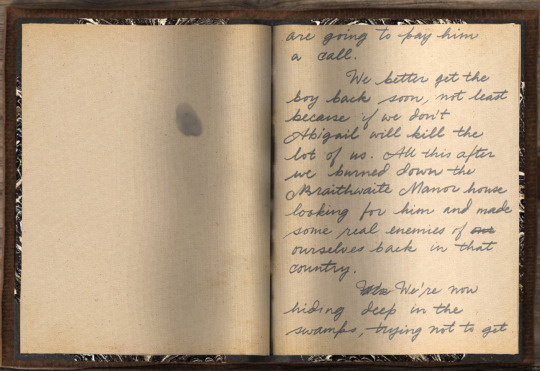 are going to pay him
a call.
We better get the
boy back soon, not least
because if we don't
Abigail will kill the
lot of us. All this after
we burned down the
Braithwaite Manor house
looking for him and made
some real enemies of
ourselves back in that
country.
We're now
hiding deep in the
swamps, trying not to get